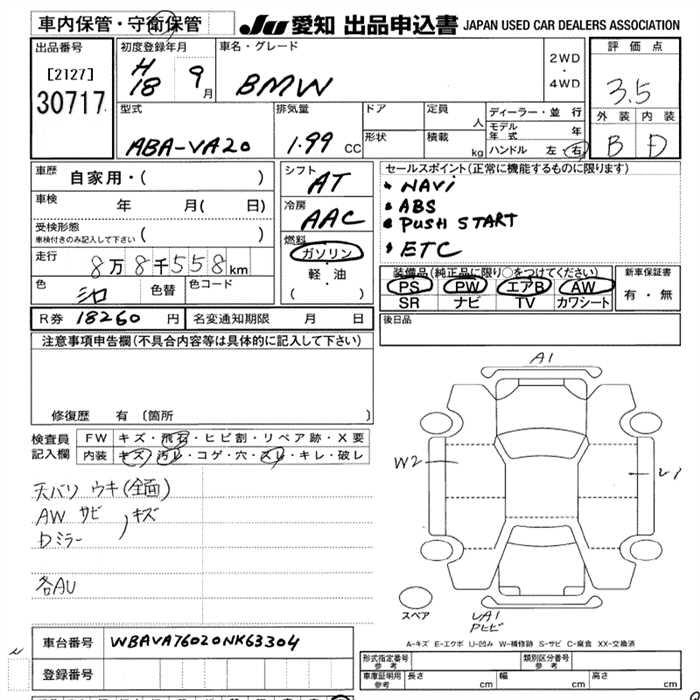 車内保管・守衛保管 JU 愛知 出品申込書 JAPAN USED CAR DEALERS ASSOCIATION
出品番号 [2127] 30717
初度登録年月 H18 9月
車名・グレード BMW
2WD・4WD
評価点 3.5
外装 内装
B D
型式 ABA-VA20
排気量 1.99 CC
ドア 形状
定員 人 積載 kg
ディーラー・並行
モデル年式 年
ハンドル 左・右
車歴 自家用・( )
車検 年 月( 日)
受検形態 車検付きのみ記入して下さい ( )
走行 8万8千558km
色 シロ 色替 色コード
シフト AT
冷房 AAC
燃料 ガソリン 軽・油 ( ・ )
セールスポイント(正常に機能するものに限ります)
・NAVi
・ABS
・PUSH START
・ETC
装備品(純正品に限り○をつけてください)
PS PW エアB AW
SR ナビ TV カワシート
新車保証書 有・無
R券 18260 円 名変通知期限 月 日
後日品
注意事項申告欄(不具合内容等は具体的に記入して下さい)
修復歴 有 〔箇所 〕
検査員記入欄
FW キズ・飛石・ヒビ割・リペア跡・X要
内装 キズ・汚レ・コゲ・穴・スレ・キレ・破レ
天バリ ウキ(全面)
AW サビ,キズ
Dミラー
各AU
A1
W2
U1
スペア
UA1
Pヒビ
A-キズ E-エクボ U-凹み W-補修跡 S-サビ C-腐食 XX-交換済
車台番号 WBAVA76020NK63304
登録番号
形式指定番号 参考 類別区分番号 参考
車庫証明用 参考 長さ cm 幅 cm 高さ cm